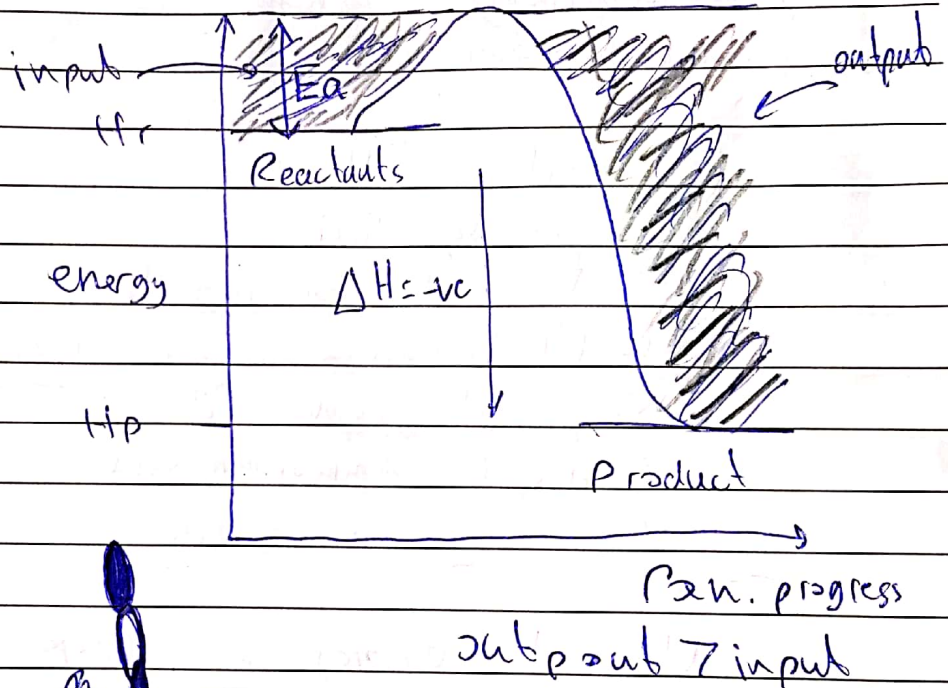 input
output
Ea
Hr
Reactants
energy
ΔH=-ve
Hp
Product
Rxn. progress
outpout > input